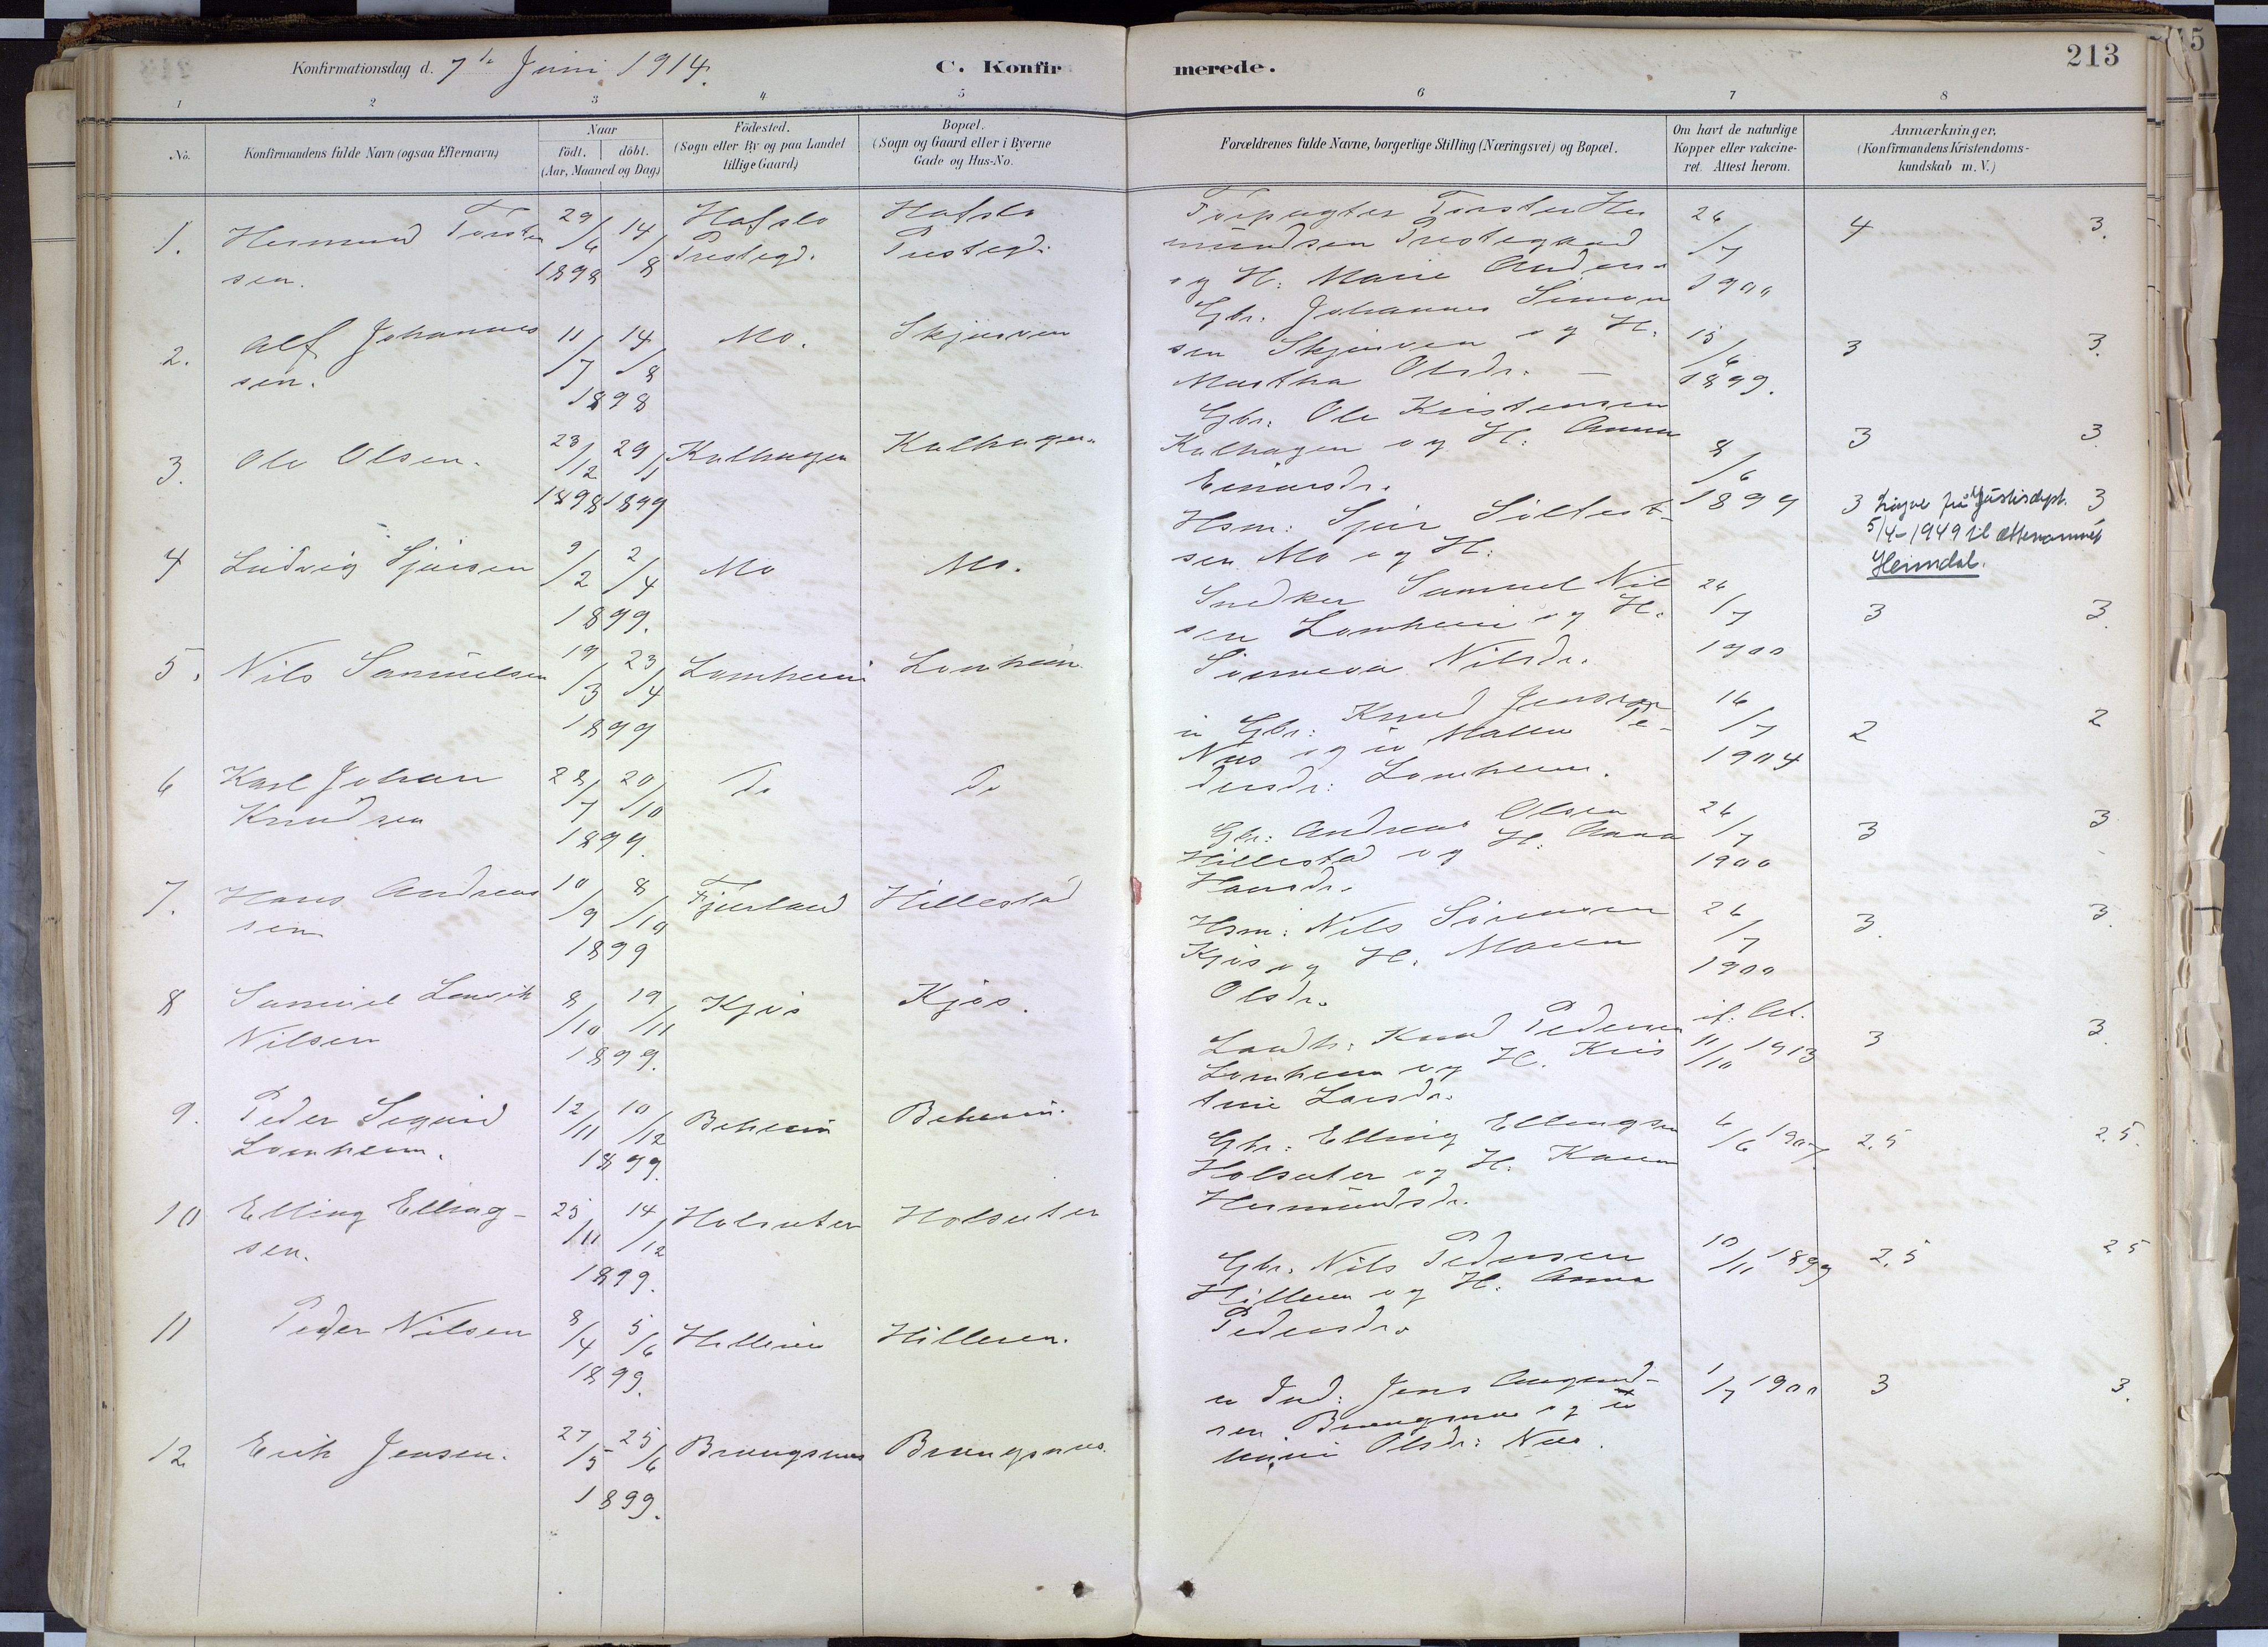 Konfirmationsdag d. 7de Juni 1914.
C. Konfirmerede.
213
1
2
3
4
5
6
7
8
No.
Konfirmandens fulde Navn (ogsaa Efternavn)
Naar
födt. döbt.
(Aar, Maaned og Dag)
Födested.
(Sogn eller By og paa Landet
tillige Gaard)
Bopæl.
(Sogn og Gaard eller i Byerne
Gade og Hus-No.
Forældrenes fulde Navne, borgerlige Stilling (Næringsvei) og Bopæl.
Om havt de naturlige
Kopper eller vakcine-
ret. Attest herom.
Anmærkninger.
(Konfirmandens Kristendoms-
kundskab m. V.)
1. Hermund Torsten
sen.
29/6 14/8
1898
Hafslo
Prestegd.
Hafslo
Prestegd.
Forpagter Torsten Her
mundsen Prestegaard
og H: Marie Andersd
26/7
1900
4 3.
2. Alf Johannes
sen.
11/7 14/8
1898
Mo.
Skjærven
Gbr: Johannes Simon
sen Skjærven og H.
Martha Olsdr. —
15/6
1899.
3 3.
3. Ole Olsen.
23/12 29/1
1898 1899
Kalhagen
Kalhagen
Gbr: Ole Kristensen
Kalhagen og H: Anna
Einarsdr.
8/6
1899
3 3.
4 Ludvig Sjursen
9/2 2/4
1899.
Mo
Mo.
Hsm: Sjur
sen Mo og H:
3 Løyve frå Justisdept. 3
5/4-1949 til ættenamnet
Heimdal.
5. Nils Samuelsen
19/3 23/4
1899
Lomheim
Lomheim
Snedker Samuel Nil
sen Lomheim og H:
Sunneva Nilsdr.
26/7
1900
3 3.
6 Karl Johan
Knudsen
28/7 20/10
1899.
Do
Do
u Gbr: Knud Jensen
Næs og u Malene Pe-
dersdr: Lomheim.
16/7
1904
2 2
7. Hans Andreas
sen
10/9 8/10
1899
Fjærland
Hillestad
Gbr: Andreas Olsen
Hillestad og H: Anna
Hansdr.
26/7
1900
3 3
8 Samuel Lauvik
Nilsen
8/10 19/11
1899.
Kjøs
Kjøs.
Hsm: Nils Sørensen
Kjøs og H. Maren
Olsdr.
26/7
1900
3. 3.
9. Peder Sigurd
Lomheim.
12/11 10/12
1899.
Beheim
Beheim.
Landh: Knud Pedersen
Lomheim og H. Kris
tine Larsdr.
if. At.
11/10 1913
3 3.
10 Elling Elling-
sen.
25/11 14/12
1899.
Holsæter
Holsæter
Gbr: Elling Ellingsen
Holsæter og H: Karen
Hermundsdr.
6/6 1907.
2,5 2,5.
11 Peder Nilsen
8/4 5/6
1899.
Hilleren
Hilleren.
Gbr. Nils Pedersen
Hilleren og H: Anna
Pedersdr.
10/11 1899
2,5 2 5
12 Erik Jensen.
27/5 25/6
1899.
Brængsnæs
Brængsnæs.
u Ind: Jens Aagaard-
sen Brængsnæs og u
Olsdr: Næs.
1/7 1900
3 3.